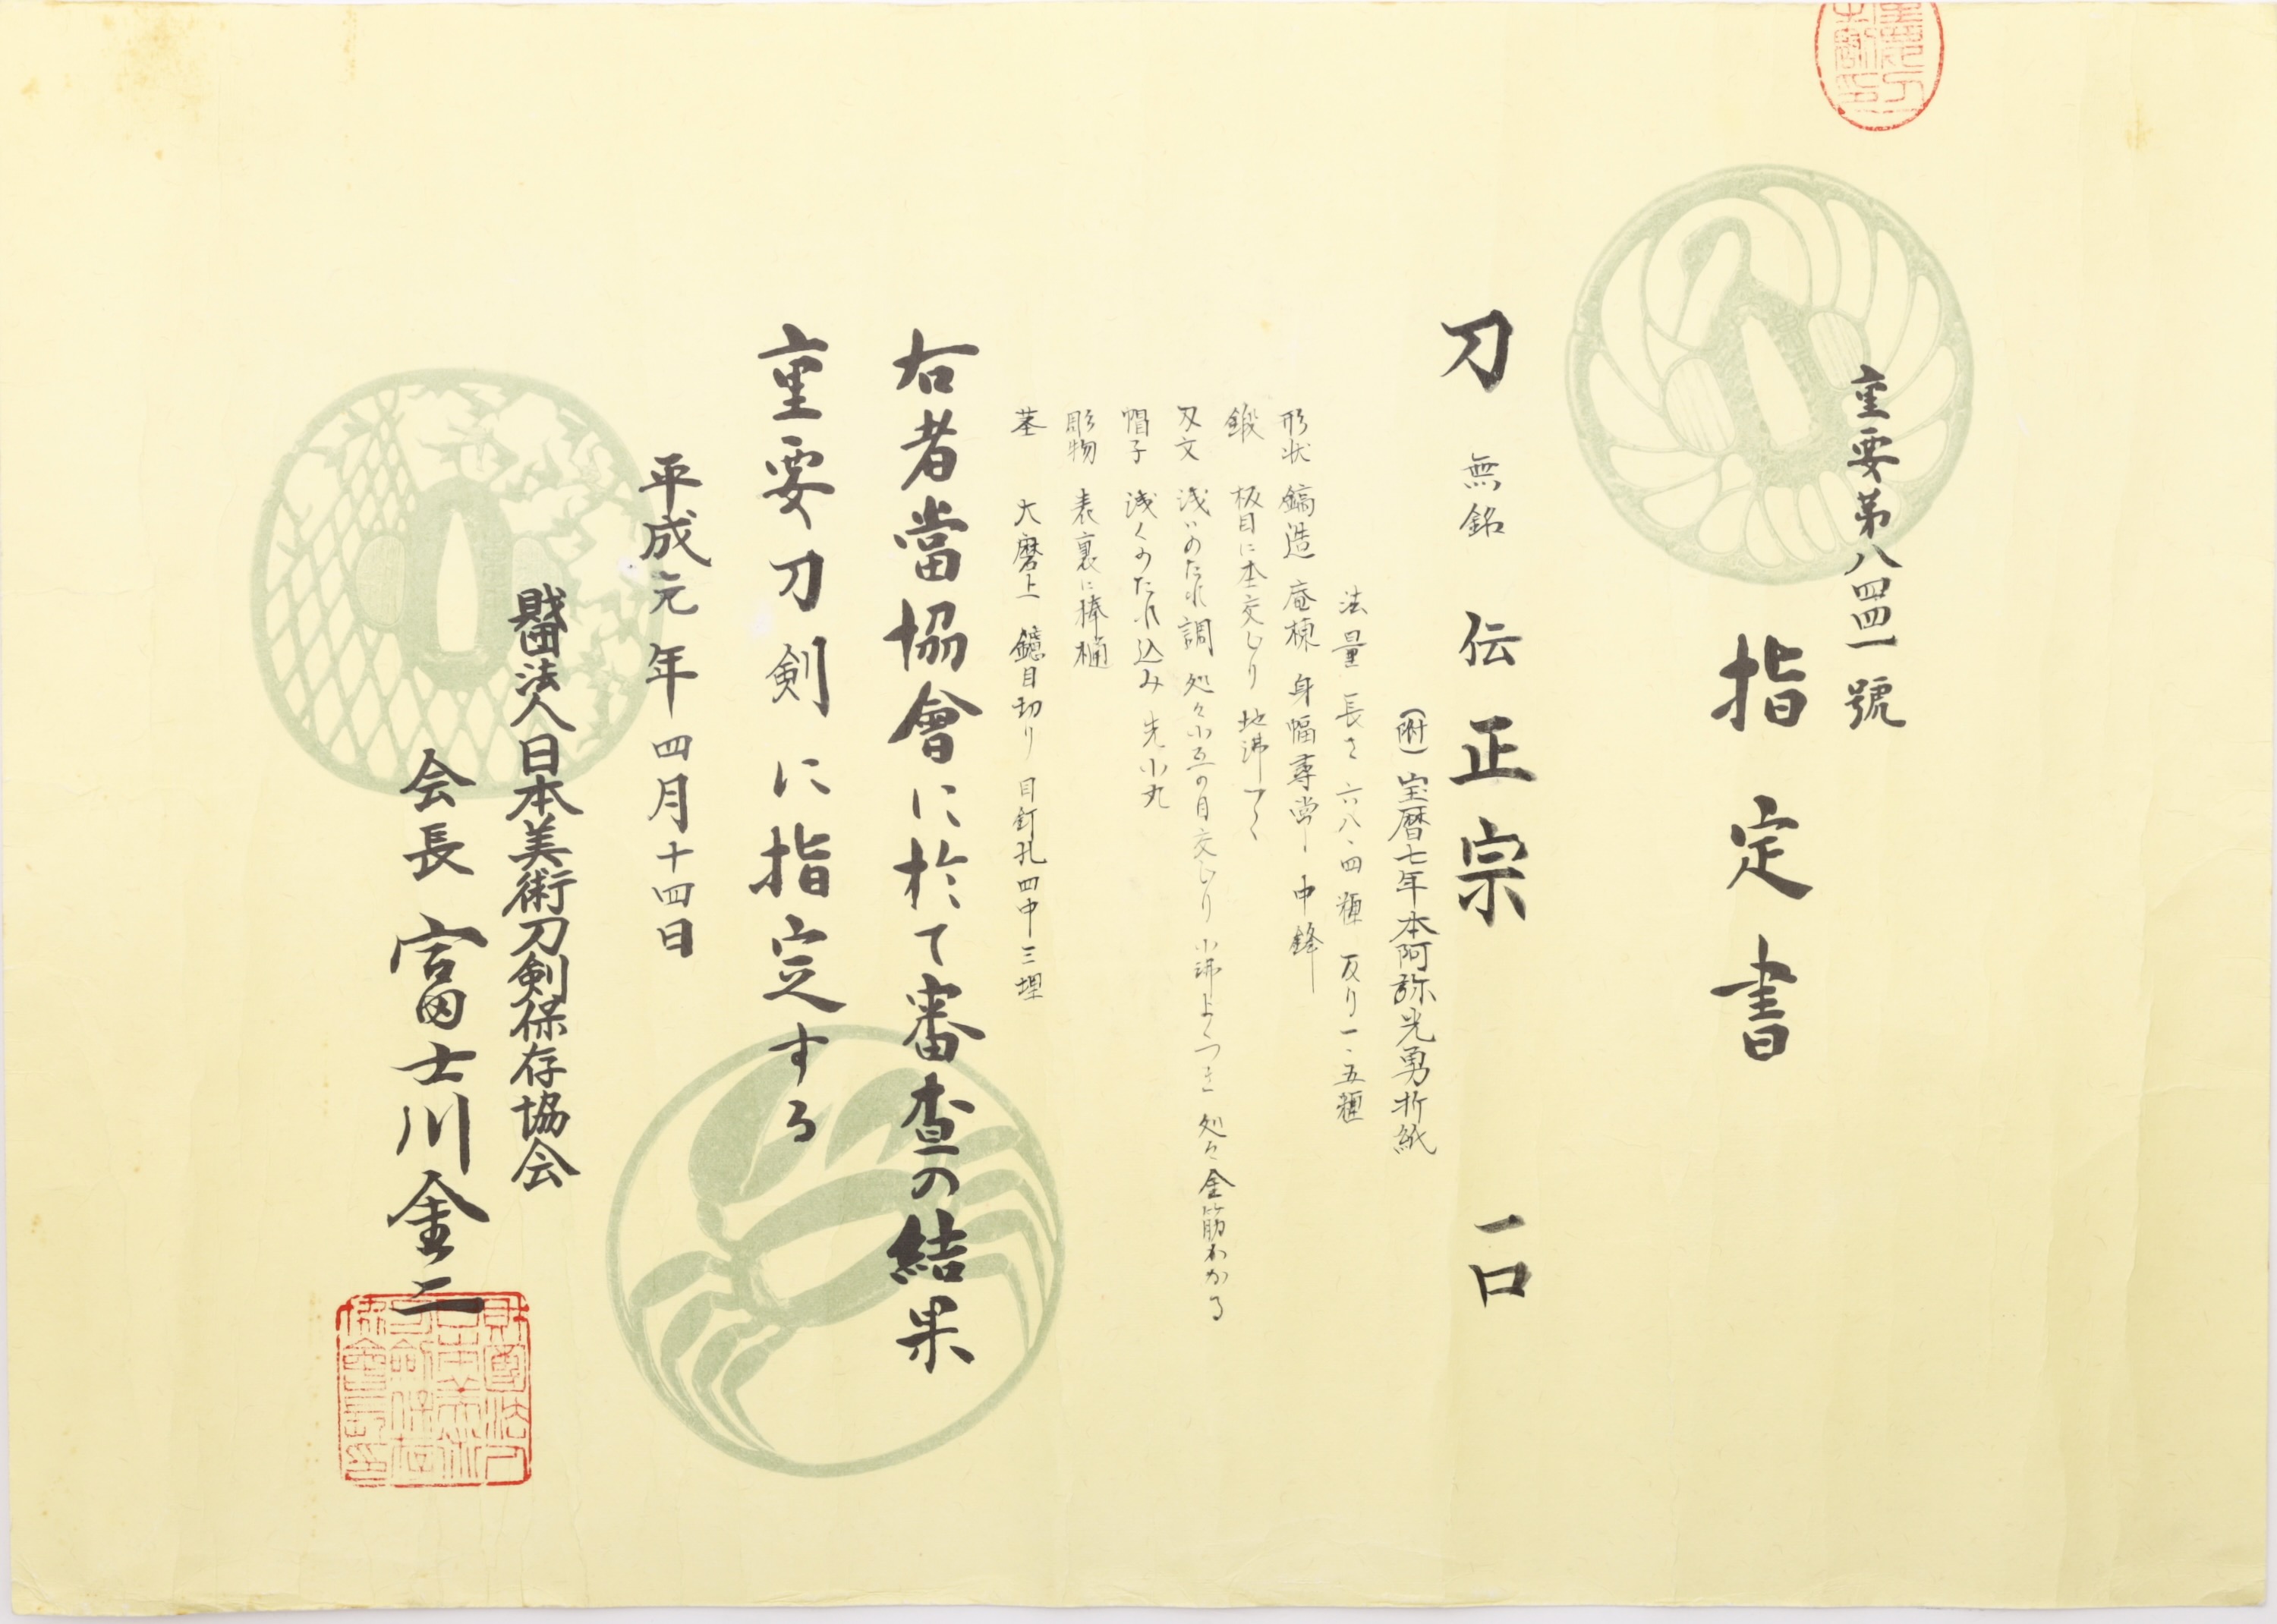 重要第八四四一號
指定書
刀 無銘 伝正宗 一口
(附)宝暦七年本阿弥光勇折紙
法量 長さ 六八、四糎 反り一、五糎
形状 鎬造 庵棟 身幅尋常 中鋒
鍛 板目に杢交じり 地沸つく
刃文 浅いのたれ調 処々小互の目交じり 小沸よくつき 処々金筋かかる
帽子 浅くのたれ込み 先小丸
彫物 表裏に棒樋
茎 大磨上 鑢目切り 目釘孔四中三埋
右者當協會に於て審査の結果
重要刀剣に指定する
平成元年四月十四日
財団法人日本美術刀剣保存協会
会長 富士川金二